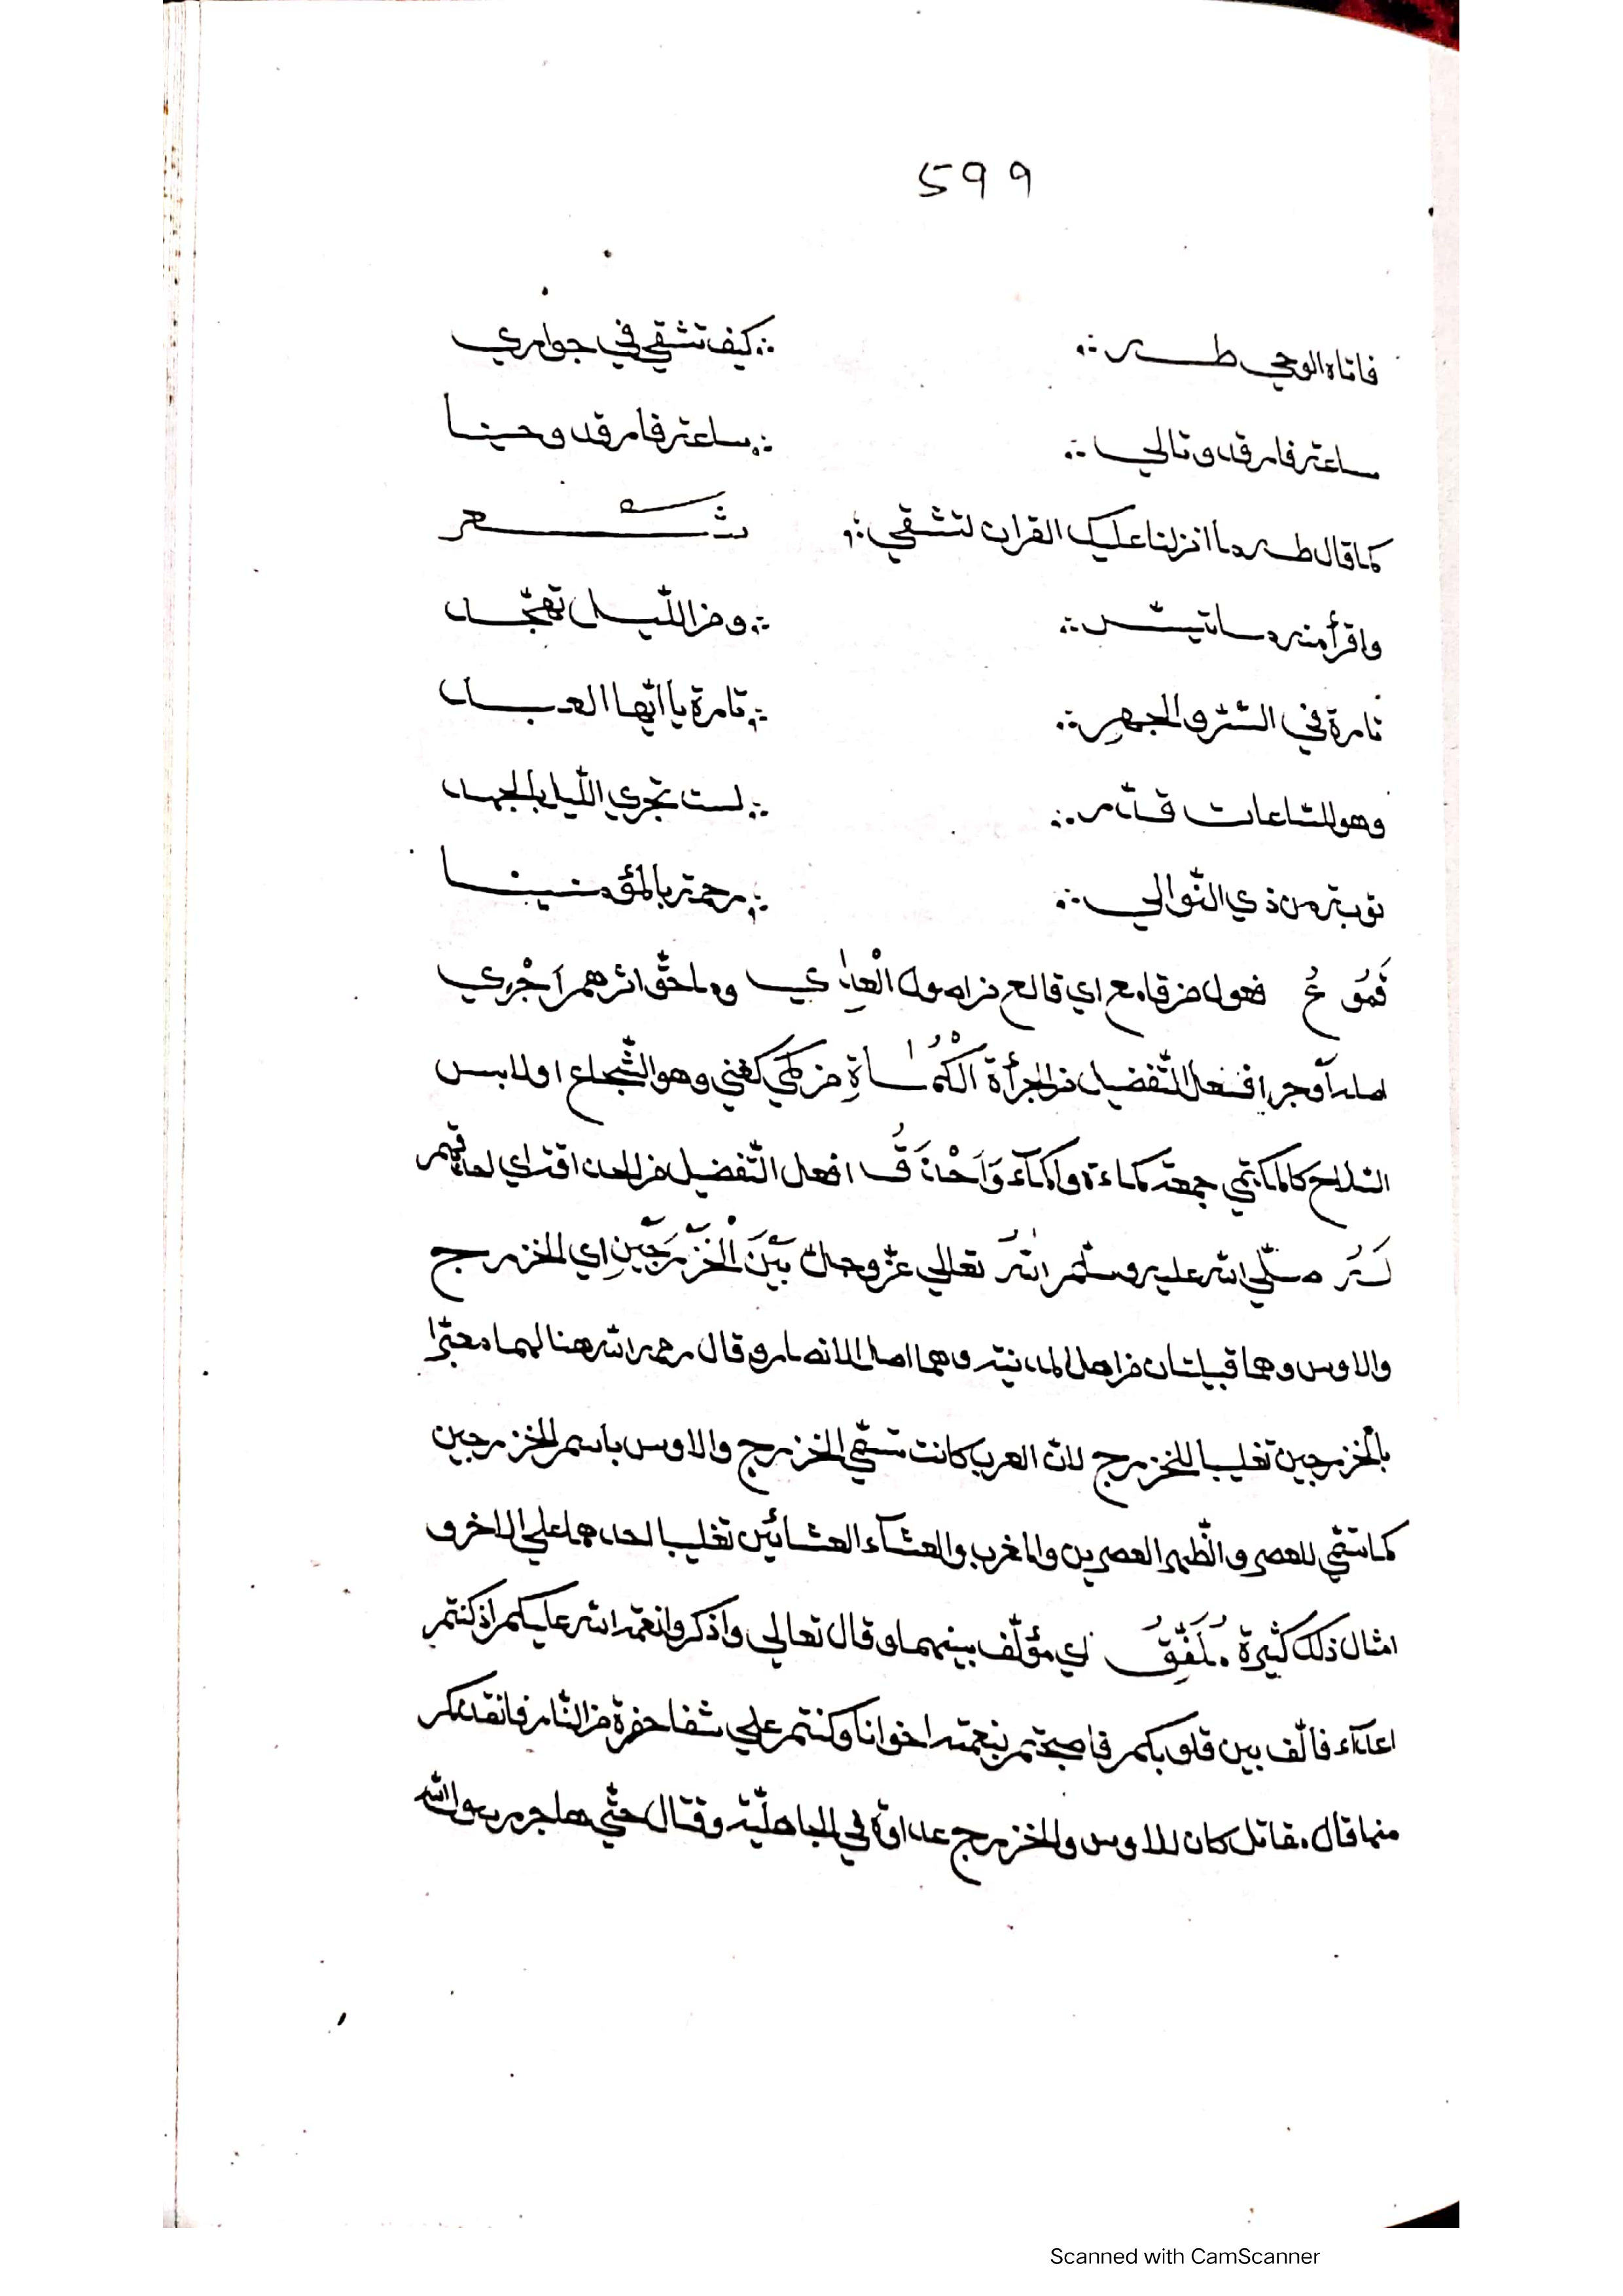 599
فاتاه الوحي طه ∴ كيف تشقي في جواري
ساعة فارقد وتالي ∴ ساعة فارقد وحينا
كما قال طه ما انزلنا عليك القران لتشقي ∴ شعر
واقرأ منه ما تيسّر ∴ ومن اللّيل تهجّد
تارة في السّرّ والجهر ∴ تارة يا ايّها العبد
وهو للسّاعات قدّر ∴ لست تجزي اللّيل بالجهد
توبة من ذي النّوالي ∴ رحمة بالمؤمنينا
قَمُوعُ فعول من قامع اي قالع من اصول الْعِدٰي وملحق اثرهم اَجْرٰي
اصله أوجرا فعل التّفضيل من الجرأة الْكُمَاةِ من كمي كغني وهو الشّجاع اولابس
السّلاح كالمكتمي جمعه كماءة واكمآء وَاَحْذَقُ افعل التّفضيل من الحذاقة اي احذقهم
لَهُ صلّي الله عليه وسلّم اللهُ تعالي عزّ وجلّ بَيْنَ الْخَزْرَجَيْنِ اي الخزرج
والاوس وهما قبيلتان من اهل المدينة وهما اصل الانصار وقال رحمه الله هنا لهما معبّرا
بالخزرجين تغليبا للخزرج لانّ العرب كانت تسمّي الخزرج والاوس باسم الخزرجين
كما تسمّي للعصر والظّهر العصرين والمغرب والعشآء العشائين تغليبا لاحدهما علي الاخر و
امثال ذلك كثيرة مُلَفِّقُ اي مؤلّف بينهما وقال تعالي واذكروا نعمة الله عليكم اذ كنتم
اعدآء فألّف بين قلوبكم فاصبحتم بنعمته اخوانا وكنتم علي شفا حفرة من النّار فانقذكم
منها قال مقاتل كان للاوس والخزرج عداوة في الجاهليّة وقتال حتّي هاجر رسول الله
Scanned with CamScanner